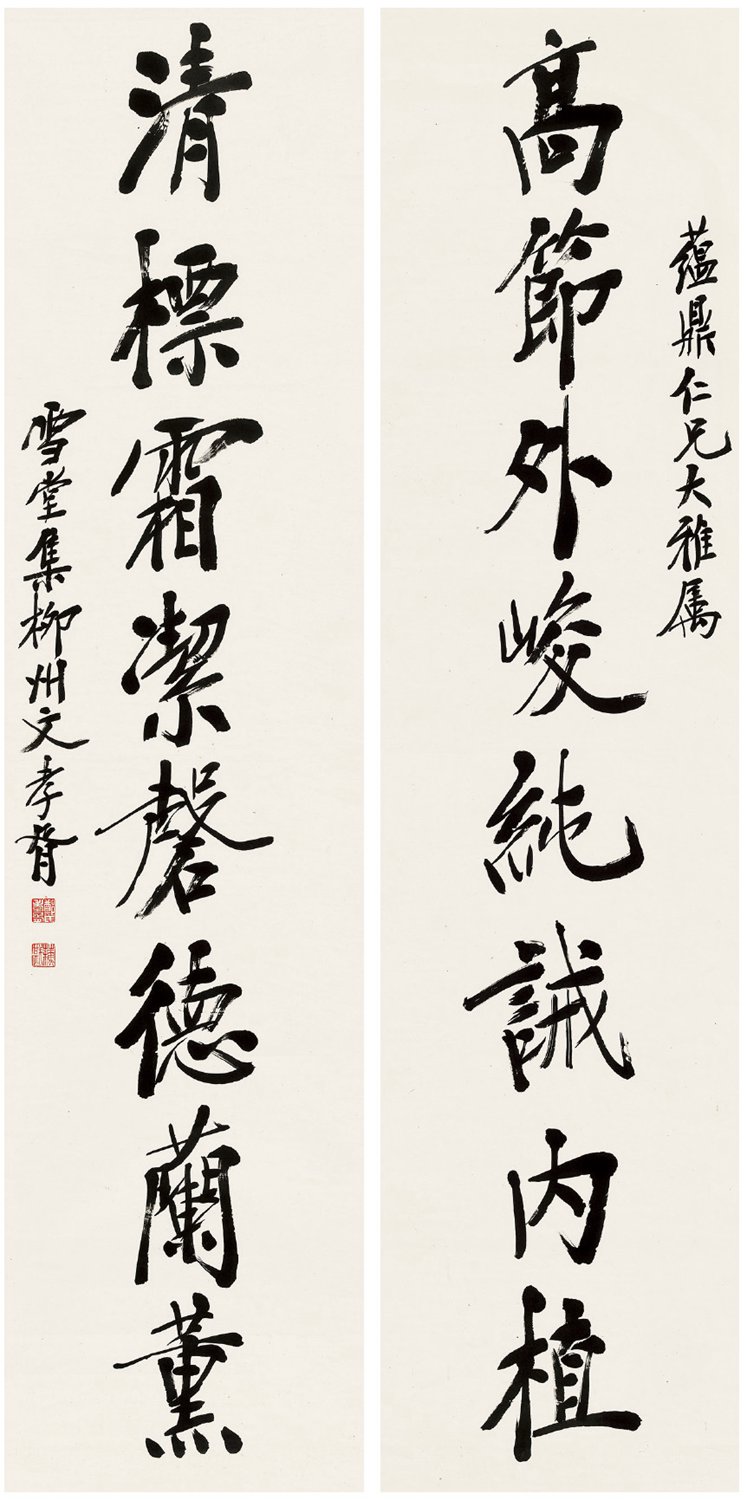 藴鼎仁兄大雅属
高節外峻純誠内植
清標霜潔馨德蘭薰
雪堂集柳州文孝胥